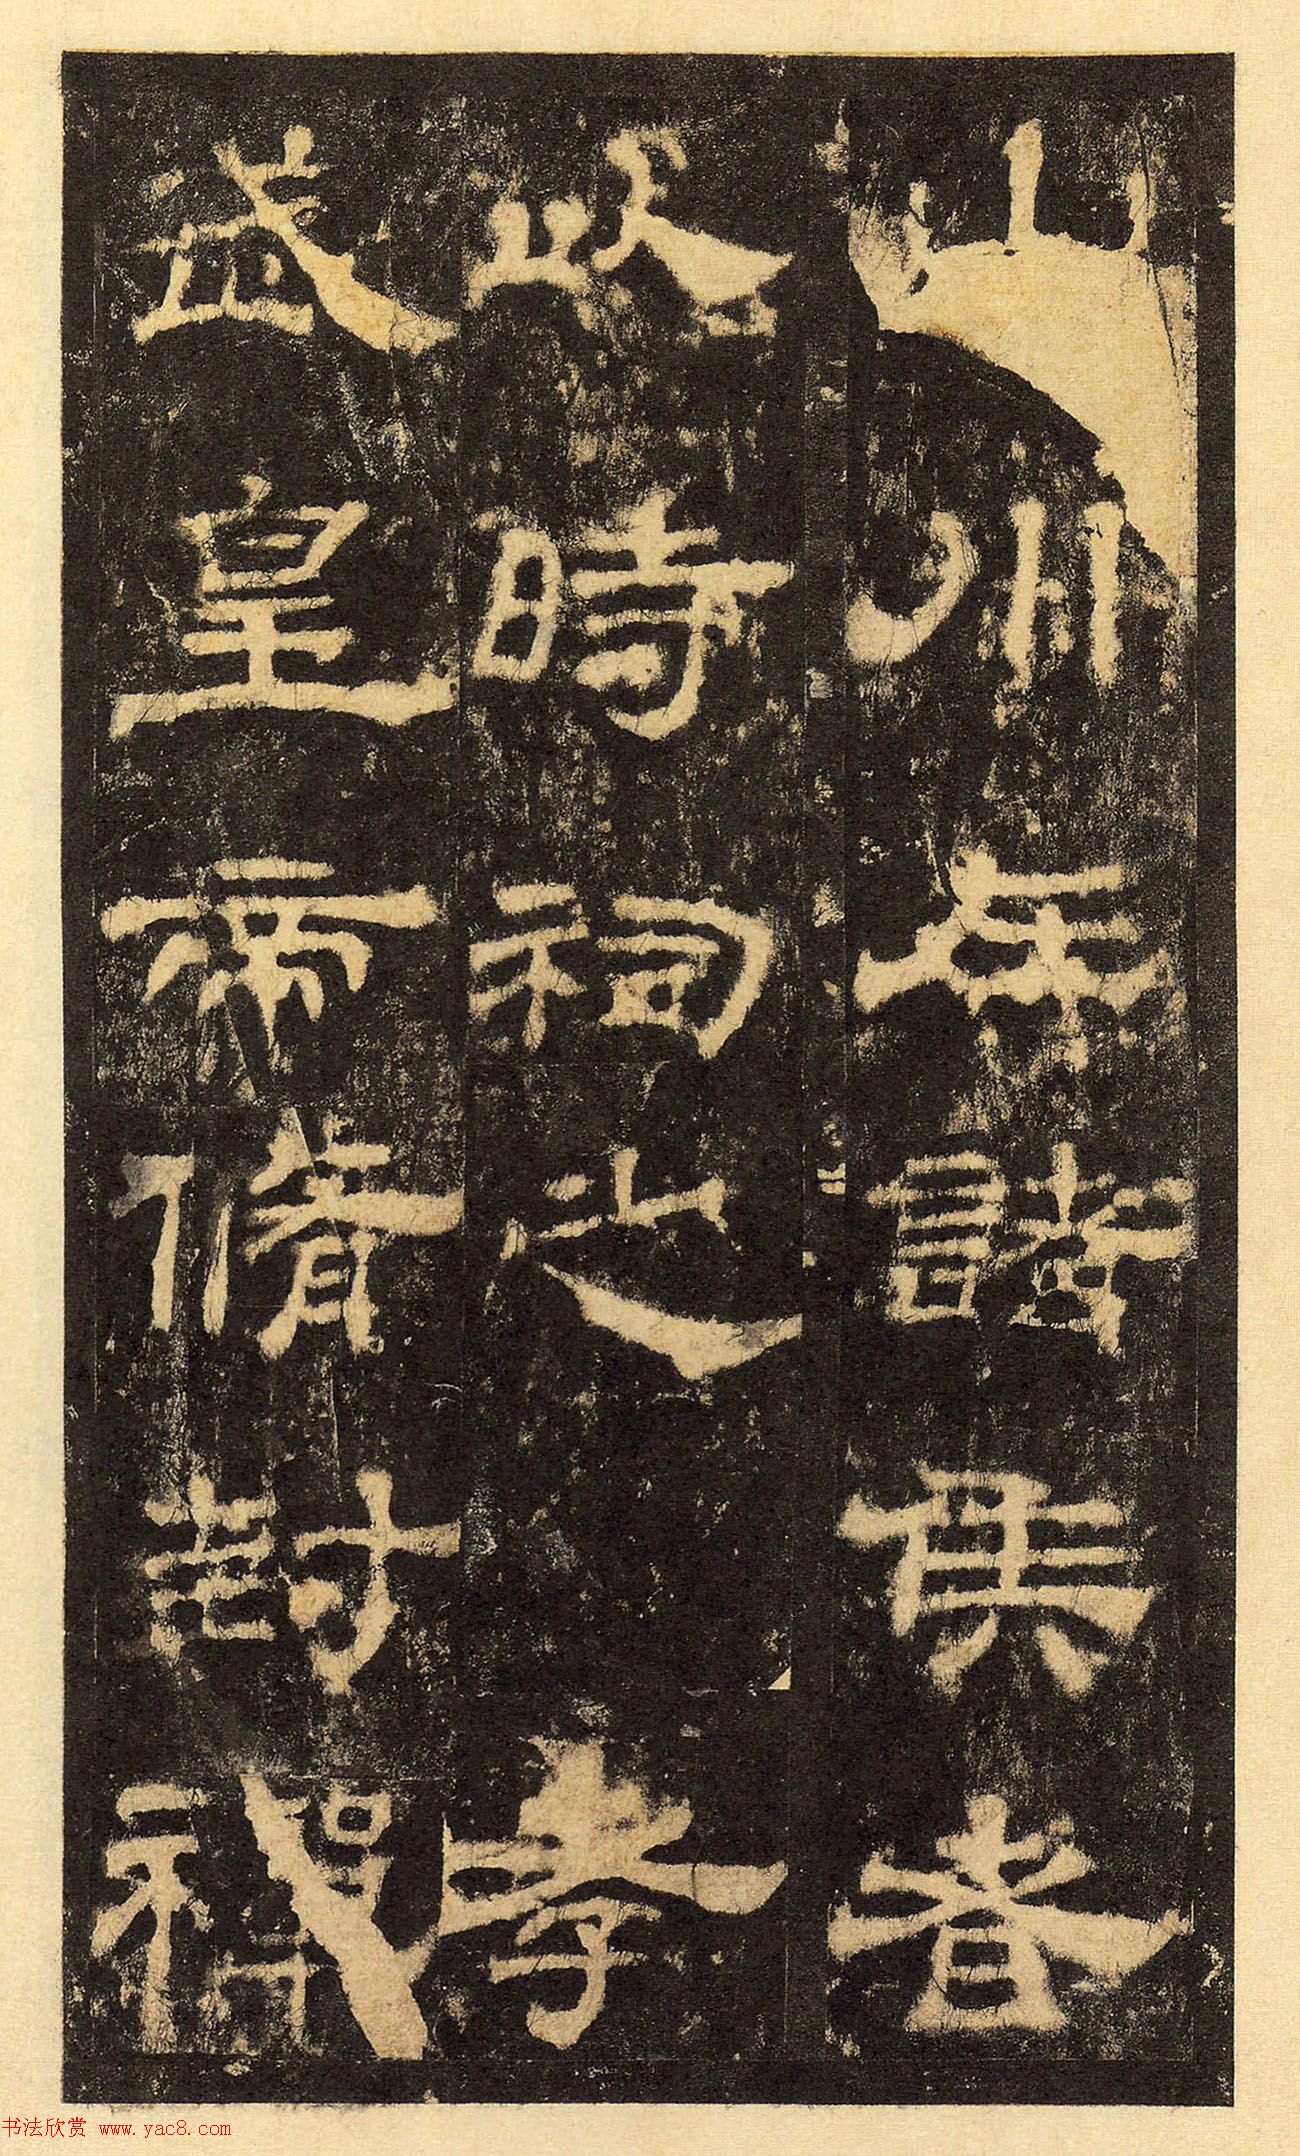 山川在諸侯者
以時祠之 孝
武皇帝脩封禪
书法欣赏 www.yac8.com